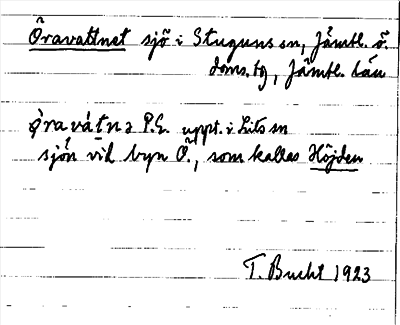 Öravattnet sjö i Stuguns sn, Jämtl. ö.
doms. tg, Jämtl. län
òravátnə P.E. uppt. i Lits sn
sjön vid byn Ö., som kallas Höjden
T. Bucht 1923